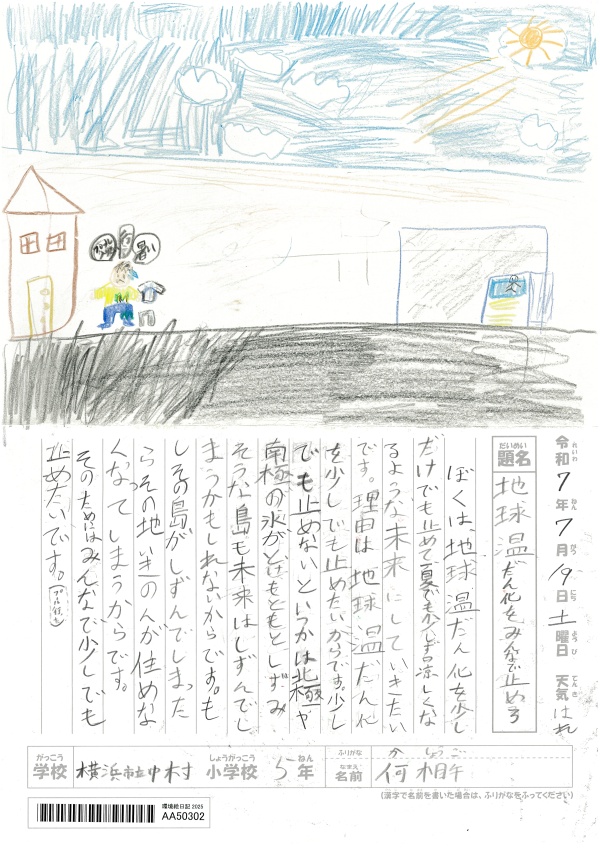 暑い
令和7年7月19日土曜日 天気はれ
れいわ ねん がつ にち ようび てんき
だいめい
題名 地球温だん化をみんなで止めろ
ぼくは地球温だん化を少し
だけでも止めて夏でも少しずつ涼しくな
るような未来にしていきたい
です。理由は地球温だん化
を少しでも止めたいからです。少し
でも止めないといつかは北極や
南極の氷がとけもともとしずみ
そうな島も未来はしずんでし
まうかもしれないからです。も
しその島がしずんでしまった
らその地いきの人が住めな
くなってしまうからです。
そのためにはみんなで少しでも
止めたいです。
がっこう しょうがっこう ねん ふりがな
学校 横浜市立中村 小学校 5年 なまえ 名前 何
(漢字で名前を書いた場合は、ふりがなをふってください)
環境絵日記 2025
AA50302